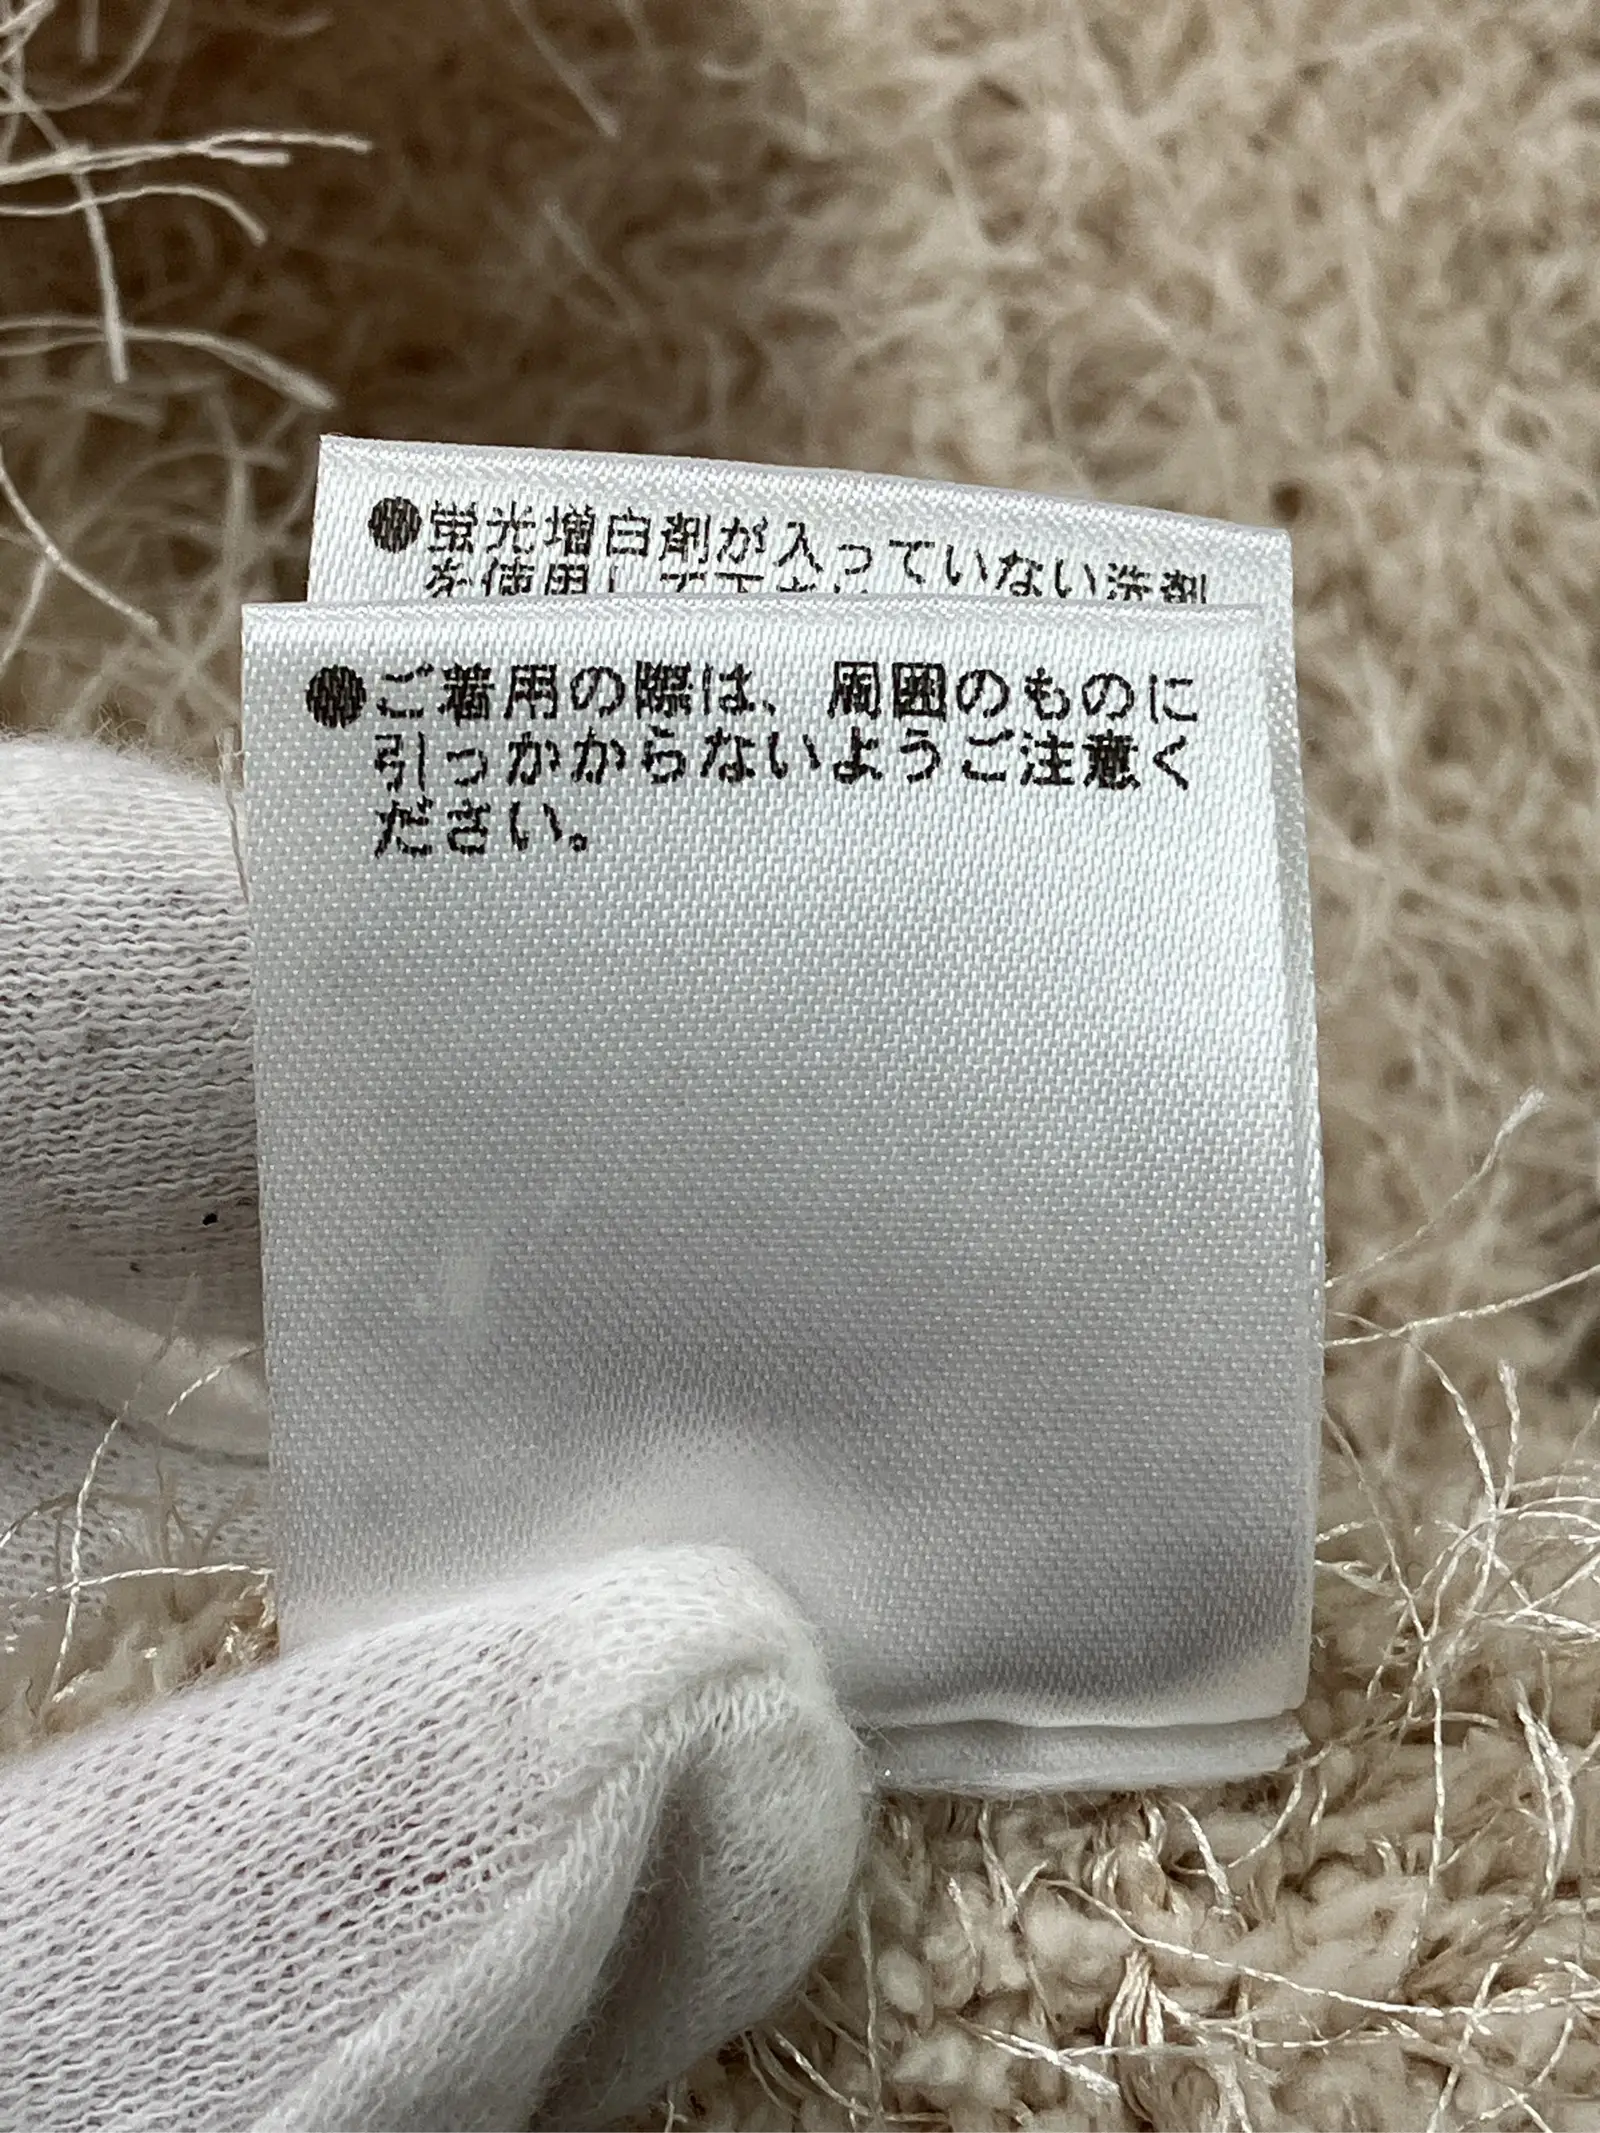 ●蛍光増白剤が入っていない洗剤
を使用して下さい
●ご着用の際は、周囲のものに
引っかからないようご注意く
ださい。